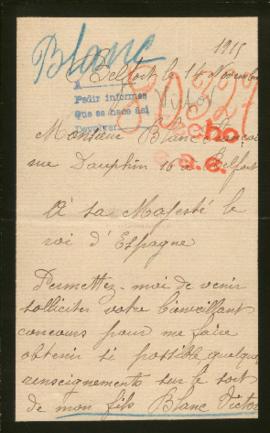 Blanc
1915
Belfort le 14 Novembre
A
Pedir informes
Que se hace así
Devolver
Monsieur Blanc
rue Dauphin 16 Belfort
A sa Majesté le
roi d'Espagne
Permettez-moi de venir
solliciter votre bienveillant
concours pour me faire
obtenir si possible quelques
renseignements sur le sort
de mon fils Blanc Victor